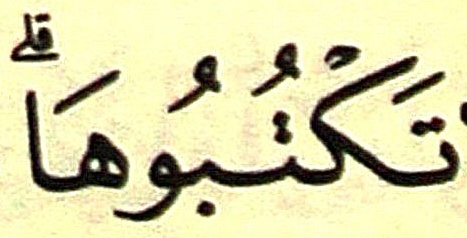 تَكْتُبُوهَاۗ